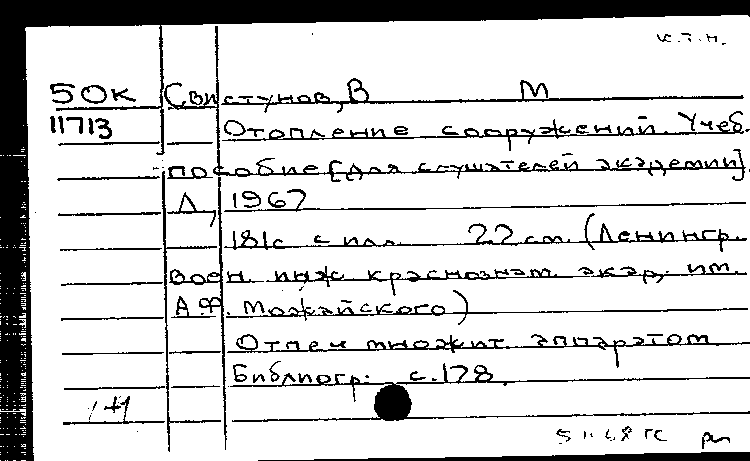 к.т.н.
50к Свистунов, В М
11713 Отопление сооружений. Учеб.
пособие [для слушателей академии].
Л, 1967
181с с илл. 22 см. (Ленингр.
воен. инж краснознам. акад. им.
А.Ф. Можайского)
Отпеч множит. аппаратом.
Библиогр: с.178.